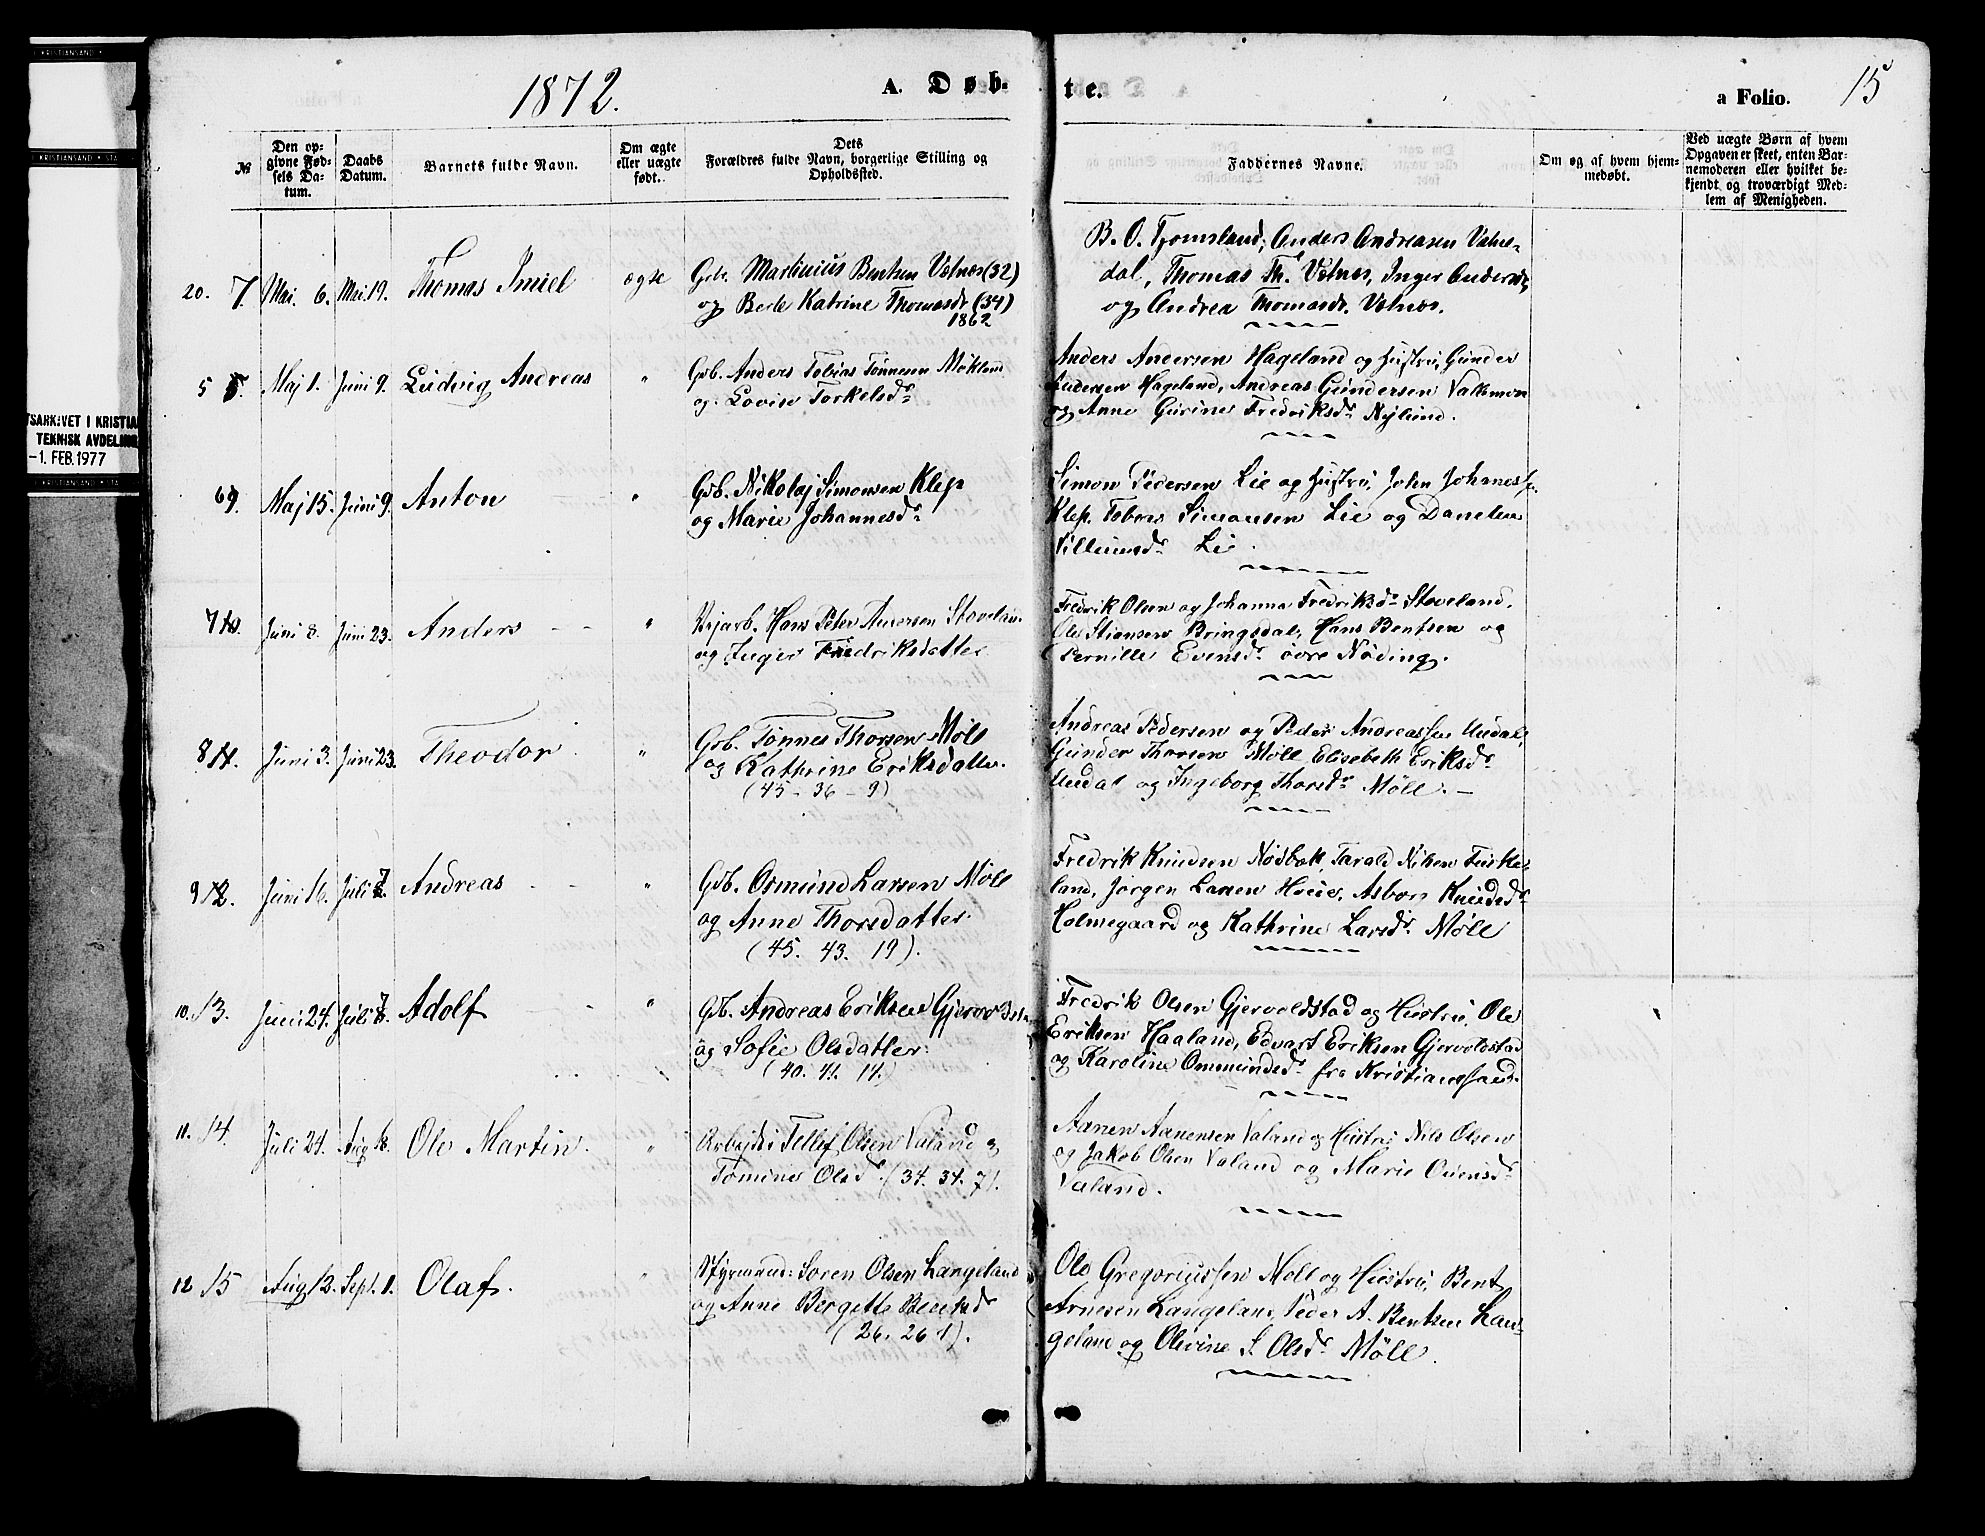 KRISTIANSAND
KRISTIANSAND • STA
TSARKIVET I KRISTIA
TEKNISK AVDELING
-1. FEB. 1977
KRISTIANSAND • STA
1872.
A. Døb-
te.
a Folio.
15
№
Den op-
givne Fød-
sels Da-
tum.
Daabs
Datum.
Barnets fulde Navn.
Om ægte
eller uægte
født.
Dets
Forældres fulde Navn, borgerlige Stilling og
Opholdssted.
Faddernes Navne.
Om og af hvem hjem-
medøbt.
Ved uægte Børn af hvem
Opgaven er skeet, enten Bar-
nemoderen eller hvilket be-
kjendt og troværdigt Med-
lem af Menigheden.
20. 7. Mai. 6. Mai 19. Thomas Imiel ægte Grb. Martinius Bentsen Volnes (32)
og Berte Katrine Thomasdr (34)
1862
B. O. Tjomsland, Anders Andreasen Volne-
dal, Thomas Th. Volnes, Inger Andersdr
og Andrea Thomasdr. Volnes.
5 Maj 1. Juni 9. Ludvig Andreas " Grb. Anders Tobias Tønnesen
og Lovise Torkelsdr
Anders Andersen Hageland og Hustru, Gunder
Andersen Hageland, Andreas Gundersen
og Anne Gurine Fredriksdr Nylund.
6 9. Maj 15. Juni 9. Anton " Grb. Nikolaj Simonsen Klep
og Marie Johannesdr
Simon Pedersen Lie og Hustru, John Johannes
Klep. Tobias Simonsen Lie og
Villumsdr Lie.
7 10. Juni 8. Juni 23. Anders " Hans Peter Andersen Stoveland
og Inger Fredriksdatter
Fredrik Olsen og Johanna Fredriksdr Stoveland.
Ole Stiansen Bringsdal, Hans Bentsen og
Pernille Evensdr øvre Nøding.
8 11. Juni 3. Juni 23. Theodor " Grb. Tønnes Thorsen Møll
og Kathrine Eriksdatter.
(45 - 36 - 9)
Andreas Pedersen og Peder Andreassen Uudal,
Gunder Thorsen Møll Elisabeth Eriksdr
Uudal og Ingeborg Thorsdr Møll. -
9 12. Juni 16. Juli 7. Andreas " Grb. Osmund Larsen Møll
og Anne Thorsdatter.
(45. 43. 19).
Fredrik Knudsen Nødbæk, Tarald Nilsen
land, Jørgen Larsen Hoie, Asbor Knudsdr
Holmegaard og Kathrine Larsdr. Møll
10. 13. Juni 24. Juli 7. Adolf " Grb. Andreas Eriksen
og Sofie Olsdatter.
(40. 41. 14.)
Fredrik Olsen Gjervoldstad og Hustru, Ole
Eriksen Haaland, Edvart Eriksen Gjervoldstad
og Karoline Ommundsdr. fra Kristianssand.
11. 14. Juli 24. Aug 18. Ole Martin. " Arbejder Tellef Olsen Valand og
Tomine Olsd. (34. 34. 7).
Aanen Aanensen Valand og Hustru Nils Olsen
og Jakob Olsen Valand og Marie
Valand.
12 15 Aug 12. Sept. 1. Olaf. " Styrmand: Soren Olsen Langeland
og Anne Bergitte Bentsdr
(26. 26 1).
Ole Gregoriussen Moll og Hustru, Bent
Arnesen Langeland, Peder A. Bentsen Lan-
geland og Olevine S. Olsdr. Møll.